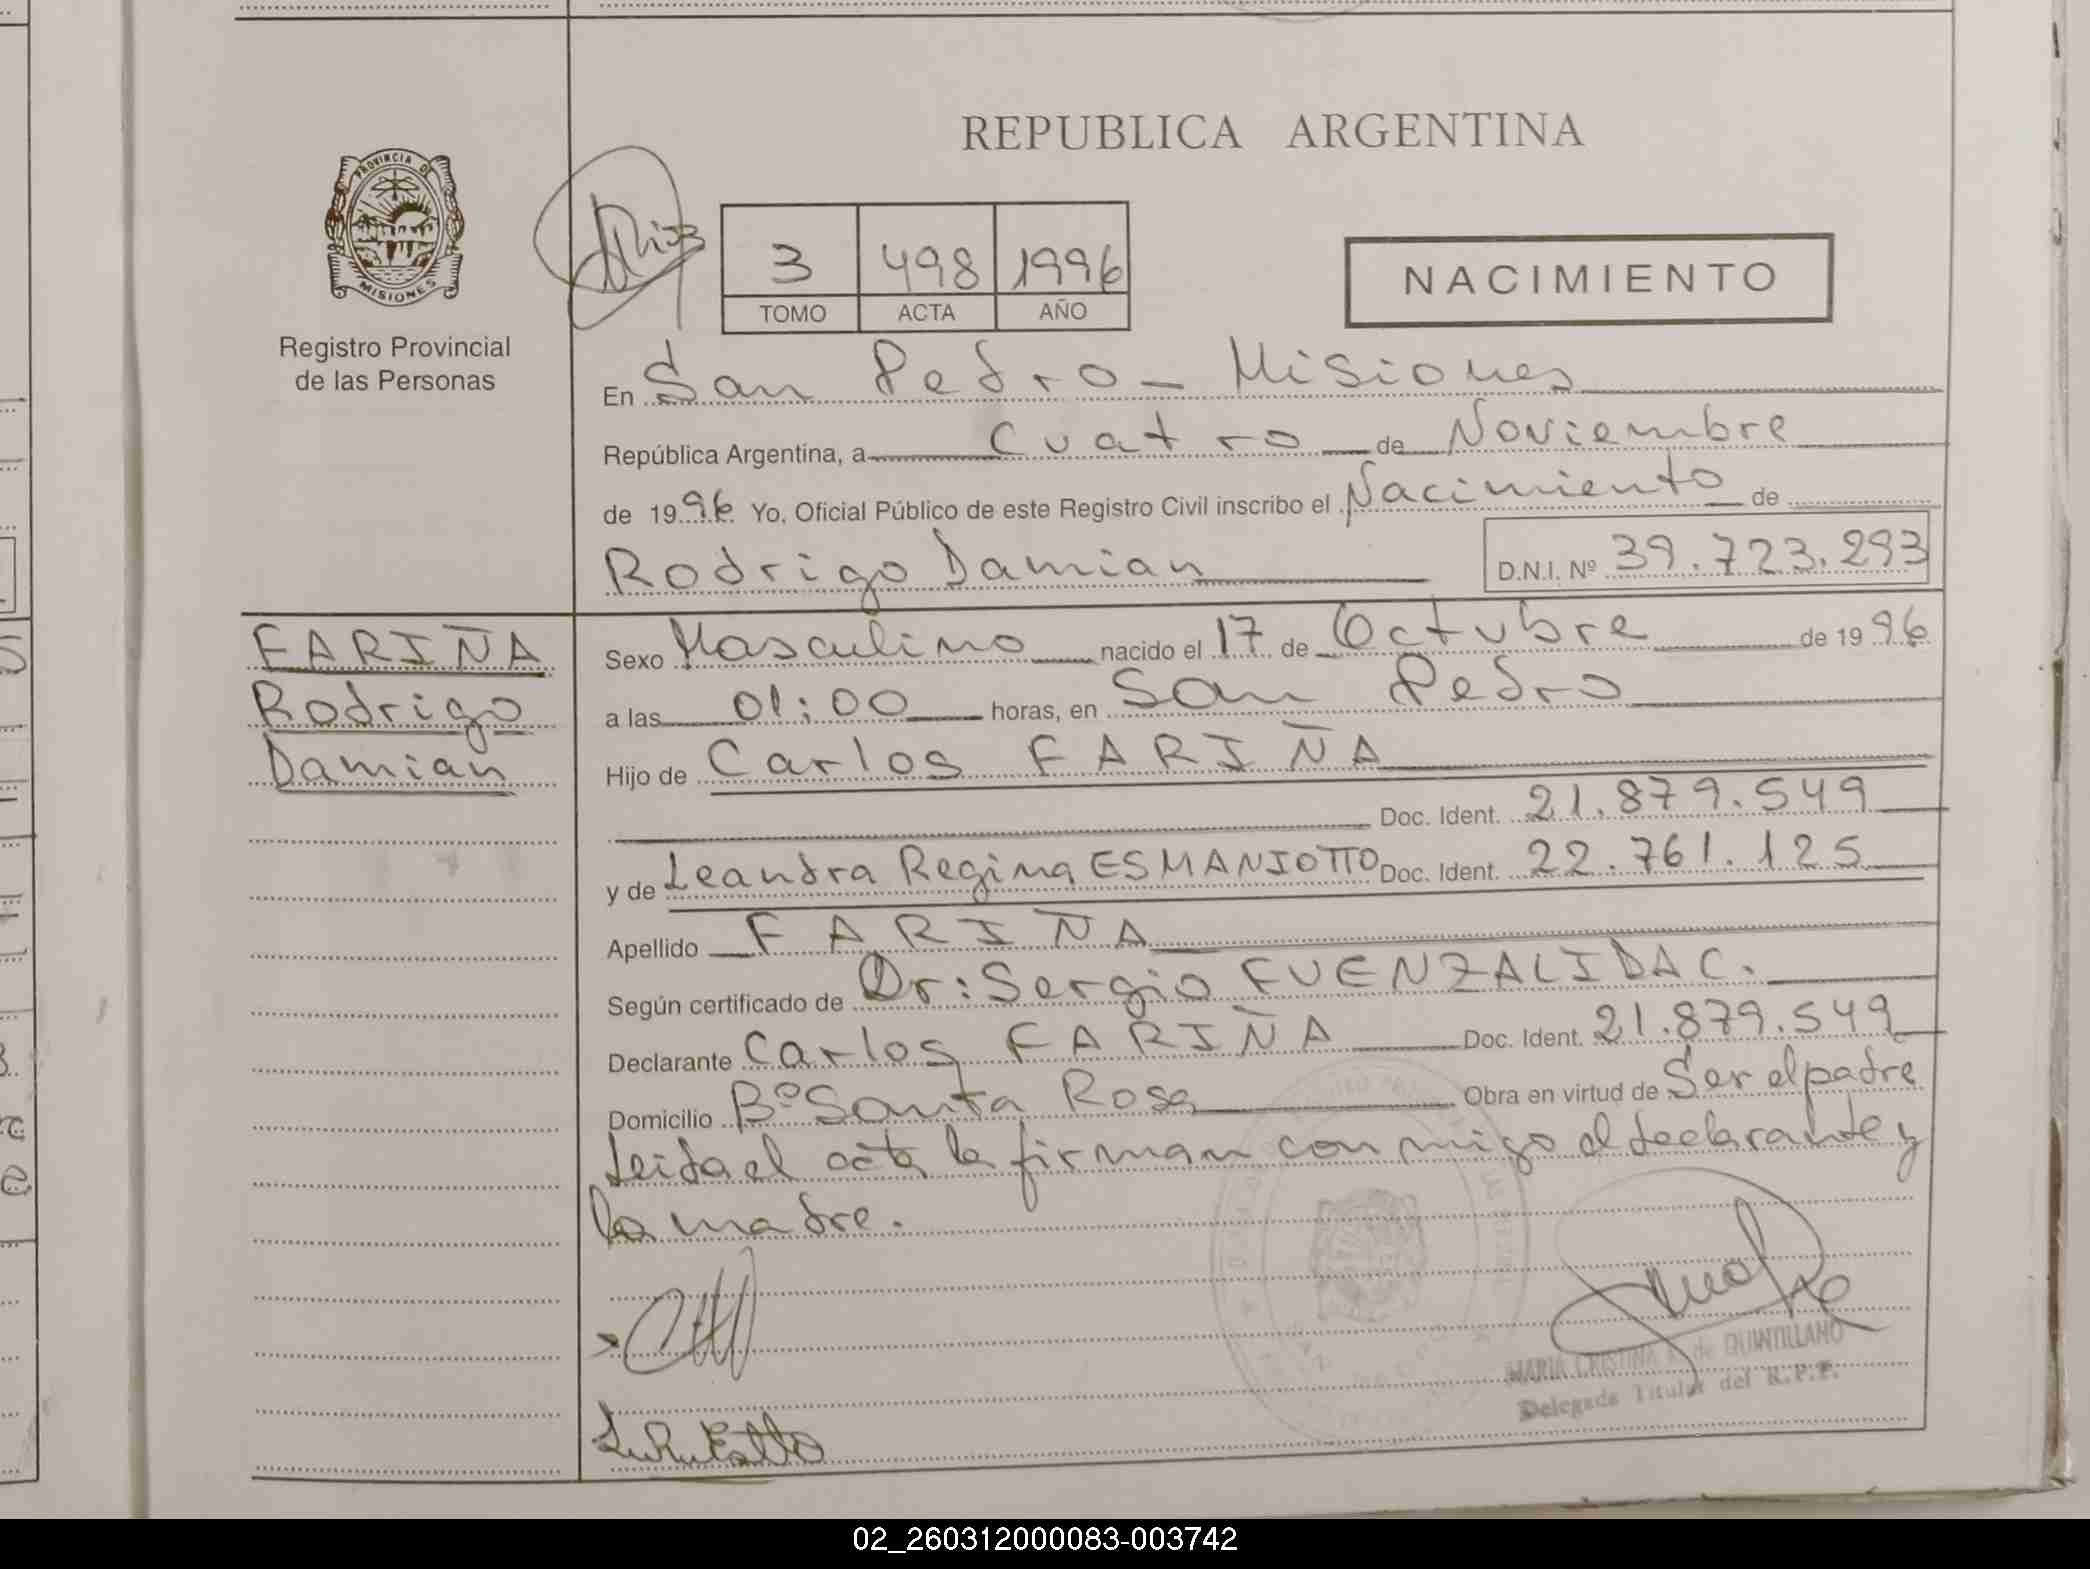 REPUBLICA ARGENTINA
PROVINCIA DE
MISIONES
Registro Provincial
de las Personas
3 498 1996
TOMO ACTA AÑO
NACIMIENTO
En San Pedro - Misiones
República Argentina, a cuatro de Noviembre
de 1996 Yo, Oficial Público de este Registro Civil inscribo el Nacimiento de
Rodrigo Damian D.N.I. Nº 39.723.293
FARIÑA
Rodrigo
Damian
Sexo Masculino nacido el 17 de Octubre de 1996
a las 01:00 horas, en San Pedro
Hijo de Carlos FARIÑA
Doc. Ident. 21.879.549
y de Leandra Regina ESMANIOTTO Doc. Ident. 22.761.125
Apellido FARIÑA
Según certificado de Dr: Sergio FUENZALIDA C.
Declarante Carlos FARIÑA Doc. Ident. 21.879.549
Domicilio Bº Santa Rosa Obra en virtud de Ser el padre
Leida el acta la firman conmigo el declarante y
la madre.
MARIA CRISTINA de QUINTILLANO
Delegada Titular del R.P.P.
02_260312000083-003742